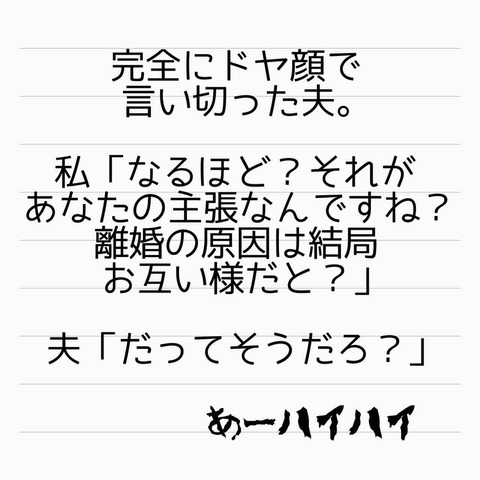 完全にドヤ顔で
言い切った夫。
私「なるほど？それが
あなたの主張なんですね？
離婚の原因は結局
お互い様だと？」
夫「だってそうだろ？」
あーハイハイ